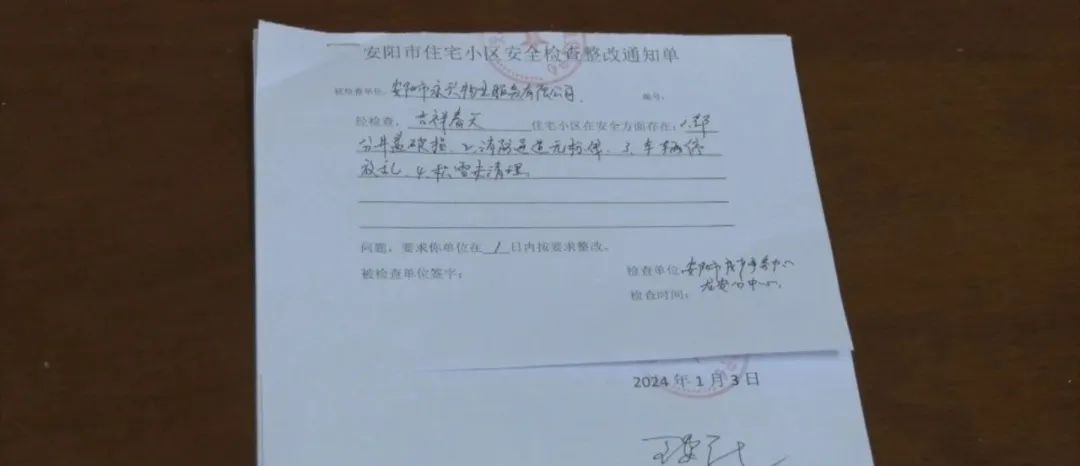 安阳市住宅小区安全检查整改通知单
被检查单位：安阳市永兴物业服务有限公司 编号：
经检查， 吉祥春天 住宅小区在安全方面存在：1.部
分井盖破损、2.消防通道 3.车辆停
放乱、4.积雪未清理
问题，要求你单位在 1 日内按要求整改。
被检查单位签字： 检查单位：安阳市 中心
检查时间： 中心
2024 年 1 月 3 日